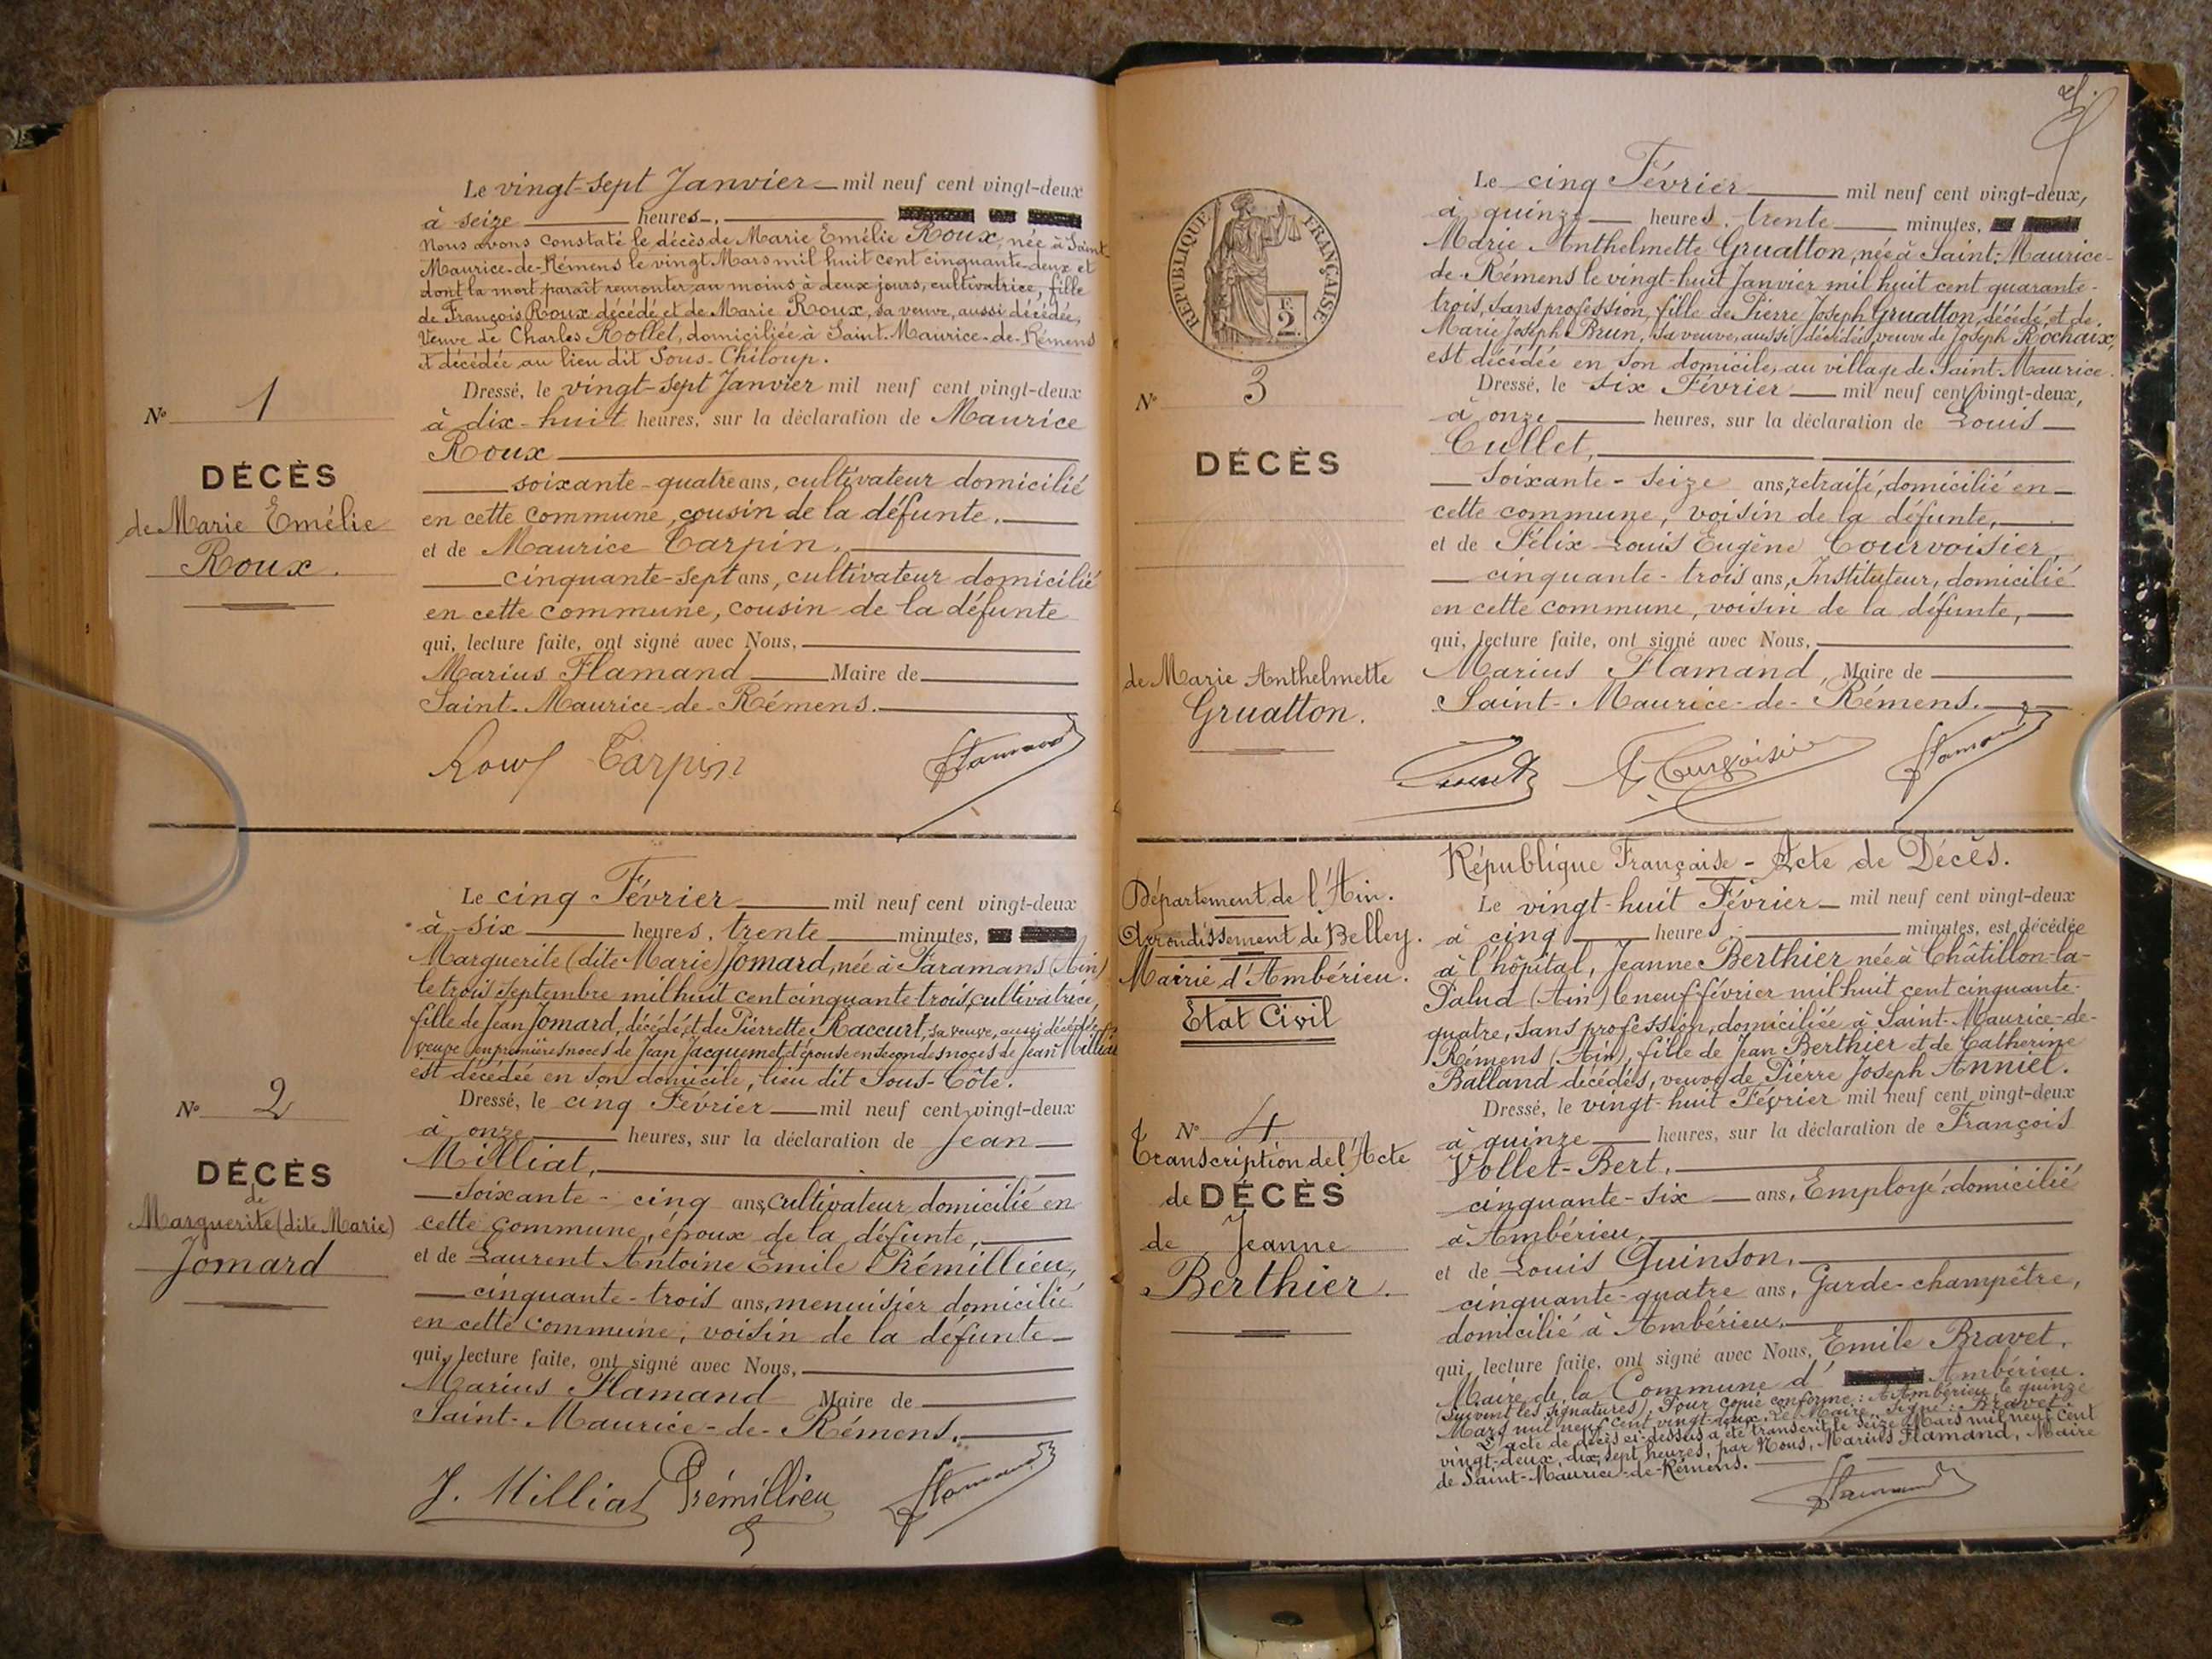 Le vingt-sept Janvier mil neuf cent vingt-deux
à seize heures,
Nous avons constaté le décès de Marie Emélie Roux, née à Saint-
Maurice-de-Rémens le vingt Mars mil huit cent cinquante-deux et
dont la mort paraît remonter au moins à deux jours, cultivatrice, fille
de François Roux décédé et de Marie Roux, sa veuve, aussi décédée,
Veuve de Charles Rollet, domiciliée à Saint-Maurice-de-Rémens
et décédée au lieu dit Sous-Chiloup.
Dressé, le vingt-sept Janvier mil neuf cent vingt-deux
à dix-huit heures, sur la déclaration de Maurice
Roux
soixante-quatre ans, cultivateur domicilié
en cette commune, cousin de la défunte.
et de Maurice Carpin,
cinquante-sept ans, cultivateur domicilié
en cette commune, cousin de la défunte
qui, lecture faite, ont signé avec Nous,
Marius Flamand Maire de
Saint-Maurice-de-Rémens.
Roux Carpin Flamand
No 1
DÉCÈS
de Marie Emélie
Roux.
Le cinq Février mil neuf cent vingt-deux
à six heures, trente minutes,
Marguerite (dite Marie) Jomard, née à Faramans (Ain)
le trois Septembre mil huit cent cinquante trois, cultivatrice,
fille de Jean Jomard, décédé, et de Pierrette Raccurt, sa veuve, aussi décédée,
veuve en premières noces de Jean Jacquemet, épouse en secondes noces de Jean Milliat
est décédée en son domicile, lieu dit Sous-Côte.
Dressé, le cinq Février mil neuf cent vingt-deux
à onze heures, sur la déclaration de Jean
Milliat,
Soixante-cinq ans, cultivateur domicilié en
cette commune, époux de la défunte,
et de Laurent Antoine Emile Prémillieu,
cinquante-trois ans, menuisier domicilié
en cette commune, voisin de la défunte
qui, lecture faite, ont signé avec Nous,
Marius Flamand Maire de
Saint-Maurice-de-Rémens.
J. Milliat Prémillieu Flamand
No 2
DÉCÈS
de
Marguerite (dite Marie)
Jomard
RÉPUBLIQUE FRANÇAISE
2 F.
Le cinq Février mil neuf cent vingt-deux,
à quinze heures, trente minutes,
Marie Anthelmette Gruatton, née à Saint-Maurice-
de-Rémens le vingt-huit Janvier mil huit cent quarante-
trois, sans profession, fille de Pierre Joseph Gruatton, décédé, et de
Marie Joseph Brun, sa veuve, aussi décédée, veuve de Joseph Rochaix,
est décédée en son domicile, au village de Saint-Maurice.
Dressé, le six Février mil neuf cent vingt-deux,
à onze heures, sur la déclaration de Louis
Cullet,
Soixante-seize ans, retraité, domicilié en
cette commune, voisin de la défunte,
et de Félix Louis Eugène Courvoisier,
cinquante-trois ans, Instituteur, domicilié
en cette commune, voisin de la défunte,
qui, lecture faite, ont signé avec Nous,
Marius Flamand, Maire de
Saint-Maurice-de-Rémens.
Flamand
No 3
DÉCÈS
de Marie Anthelmette
Gruatton.
République Française - Acte de Décès.
Le vingt-huit Février mil neuf cent vingt-deux
à cinq heures, minutes, est décédée
à l'hôpital, Jeanne Berthier née à Châtillon-la-
Palud (Ain) le neuf février mil huit cent cinquante-
quatre, sans profession, domiciliée à Saint-Maurice-de-
Rémens (Ain), fille de Jean Berthier et de Catherine
Balland décédés, veuve de Pierre Joseph Anniel.
Dressé, le vingt-huit Février mil neuf cent vingt-deux
à quinze heures, sur la déclaration de François
Vollet-Bert,
cinquante-six ans, Employé, domicilié
à Ambérieu,
et de Louis Quinson,
cinquante-quatre ans, Garde-champêtre,
domicilié à Ambérieu,
qui, lecture faite, ont signé avec Nous, Emile Bravet,
Maire de la Commune d' Ambérieu.
(Suivent les signatures). Pour copie conforme: A Ambérieu, le quinze
Mars mil neuf cent vingt-deux. Le Maire. Signé: Bravet.
L'acte de décès ci-dessus a été transcrit le Seize Mars mil neuf cent
vingt-deux, dix-sept heures, par Nous, Marius Flamand, Maire
de Saint-Maurice-de-Rémens.
Flamand
Département de l'Ain.
Arrondissement de Belley.
Mairie d'Ambérieu.
Etat Civil
No 4
Transcription de l'Acte
de DÉCÈS
de Jeanne
Berthier.